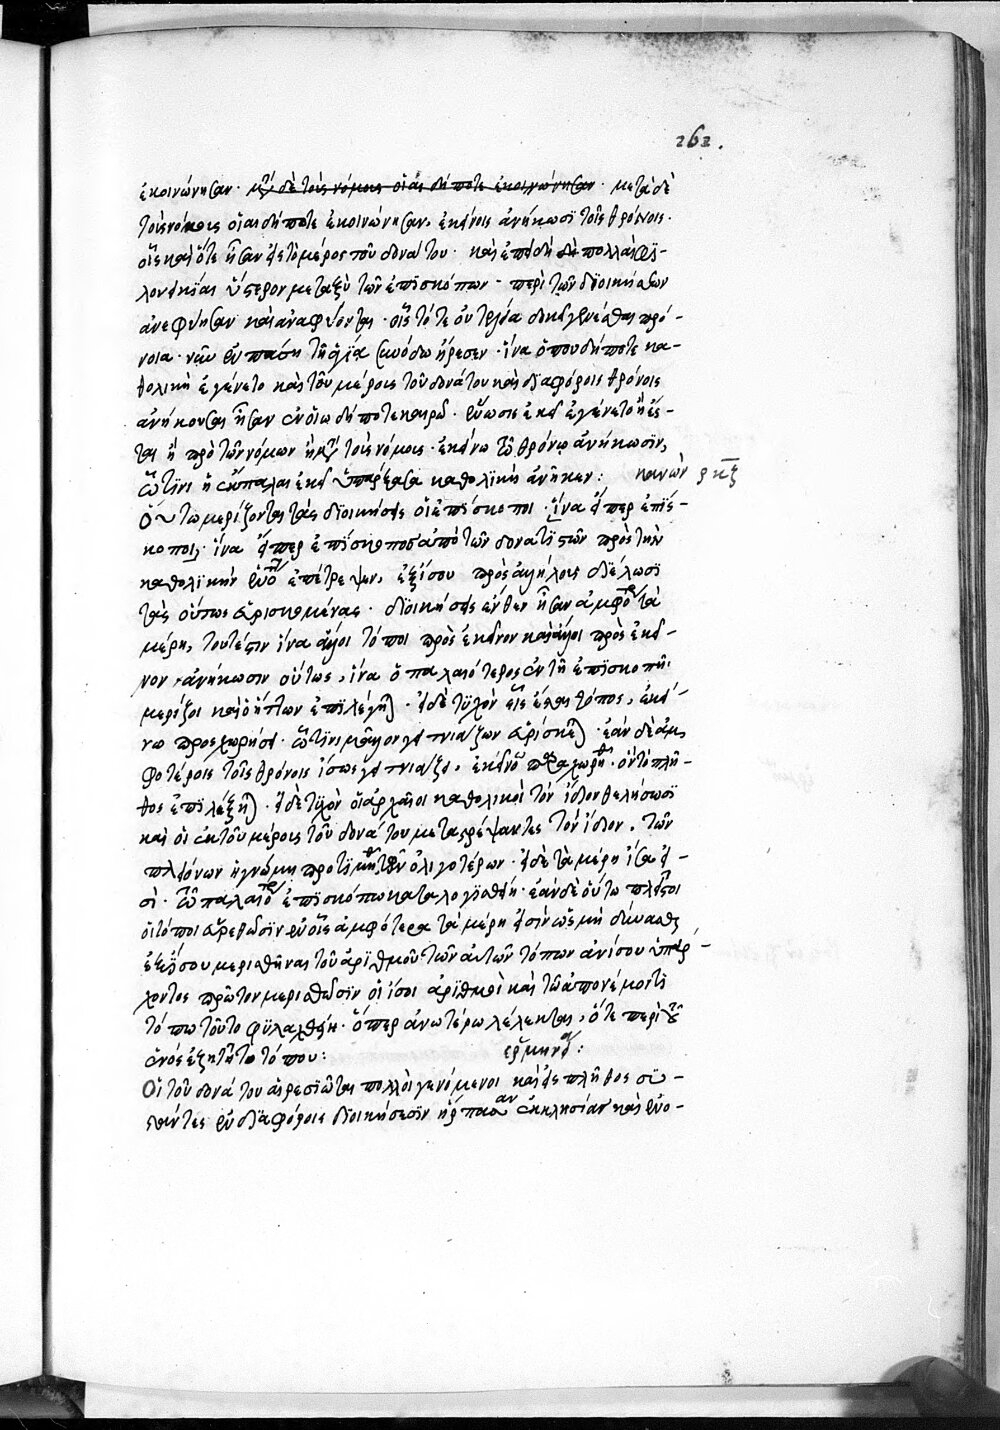 262.
ἐκοινώνησαν· μετὰ δὲ τοὺς νόμους οἱαι δήποτε ἐκοινώνησαν· μετὰ δὲ
τοὺς νόμους οἵαι δήποτε ἐκοινώνησαν, ἐκείνοις ἀνήκωσι τοῖς θρόνοις·
οἷς καὶ ὅτε ἦσαν εἰς τὸ μέρος τοῦ δονάτου· καὶ ἐπειδὴ πολλαὶ φι-
λονεικίαι ὕστερον μεταξὺ τῶν ἐπισκόπων· περὶ τῶν διοικήσεων
ἀνεφύησαν καὶ ἀναφύονται· οἷς τότε
νοια· νῦν ἐν πάσῃ τῇ ἁγίᾳ συνόδῳ ἤρεσεν· ἵνα ὅπου δήποτε κα-
θολικὴ ἐγένετο καὶ τοῦ μέρους τοῦ δονάτου καὶ διαφόροις θρόνοις
ἀνήκουσαι ἦσαν ἐν οἵῳ δήποτε καιρῷ· ἕνωσις ἐκεῖ ἐγένετο ἢ ἔσ-
ται ἢ πρὸ τῶν νόμων ἢ μετὰ τοὺς νόμους· ἐκείνῳ τῷ θρόνῳ ἀνήκωσιν,
ᾧτινι ἡ ἔκπαλαι ἐκεῖ ὑπάρξασα καθολικὴ ἀνῆκεν: κανὼν ρκζ
Οὕτω μερίζονται τὰς διοικήσεις οἱ ἐπίσκοποι· ἵνα εἴπερ ἐπίσ-
κοποι, ἵνα εἴπερ ἐπίσκοπος ἀπὸ τῶν δονατιστῶν πρὸς τὴν
καθολικὴν ἐπέτρεψεν, ἐξίσου πρὸς ἀλλήλους διέλωσι
τὰς οὕτως εὑρισκομένας· διοικήσεις ἔνθεν ἦσαν ἀμφότερα τὰ
μέρη, τουτέστιν ἵνα ἄλλοι τόποι πρὸς ἐκεῖνον καὶ ἄλλοι πρὸς ἐκεῖ-
νον ἀνήκωσιν οὕτως, ἵνα ὁ παλαιότερος ἐν τῇ ἐπισκοπῇ
μερίζοι καὶ ὁ ἥττων ἐπιλέγηται· εἰ δὲ τυχὸν εἷς ἔσται τόπος, ἐκεί-
νῳ προσχωρήσει· ᾧτινι μᾶλλον γειτνιάζων εὑρίσκεται· ἐὰν δὲ ἀμ-
φοτέροις τοῖς θρόνοις ἴσως γειτνιάζει, ἐκείνῳ παραχωρηθῇ· ὃν τὸ πλῆ-
θος ἐπιλέξηται· εἰ δὲ τυχὸν οἱ ἀρχαῖοι καθολικοὶ τὸν ἴδιον θελήσωσι
καὶ οἱ ἐκ τοῦ μέρους τοῦ δονάτου μεταστρέψαντες τὸν ἴδιον, τῶν
πλειόνων ἡ γνώμη προτιμηθῇ τῶν ὀλιγοτέρων· εἰ δὲ τὰ μέρη ἴσα εἰ-
σὶ· τῷ παλαιοτέρῳ ἐπισκόπῳ καταλογισθείη· ἐὰν δὲ οὕτω πλεῖστοι
οἱ τόποι εὑρεθῶσιν ἐν οἷς ἀμφότερα τὰ μέρη εἰσὶν ὡς μὴ δύνασθαι
ἐξίσου μερισθῆναι τοῦ ἀριθμοῦ τῶν αὐτῶν τόπων ἀνίσου ὑπάρ-
χοντος πρῶτον μερισθῶσιν οἱ ἴσοι ἀριθμοὶ καὶ τῷ ἀπονέμοντι
τόπῳ τοῦτο φυλαχθείη· ὅπερ ἀνωτέρω λέλεκται, ὅτε περὶ τοῦ
ἑνὸς ἐζητεῖτο τόπου: ἑρμηνεία:
Οἱ τοῦ δονάτου αἱρεσιῶται πολλοὶ γενόμενοι καὶ εἰς πλῆθος συ-
στάντες ἐν διαφόροις διοικήσεσιν πᾶσαν ἐκκλησίαν καὶ ἐνο-